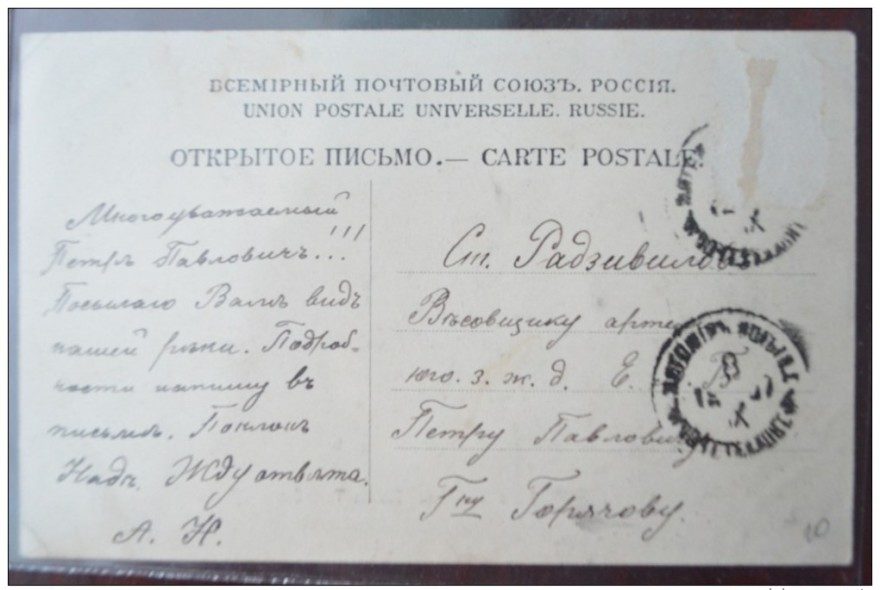 ВСЕМІРНЫЙ ПОЧТОВЫЙ СОЮЗЪ. РОССІЯ.
UNION POSTALE UNIVERSELLE. RUSSIE.
ОТКРЫТОЕ ПИСЬМО.— CARTE POSTALE.
Многоуважаемый
Петръ Павловичъ!!!
Посылаю Вамъ видъ
нашей рѣки. Подроб-
ности напишу въ
письмѣ. Поклонъ
Надѣ. Жду отвѣта.
А. Н.
Ст. Радзивиловъ
Вѣсовщику арте
юго. з. ж. д. Е.
Петру Павловичу
Гну Горячову.
ЖИТОМІРЪ
10